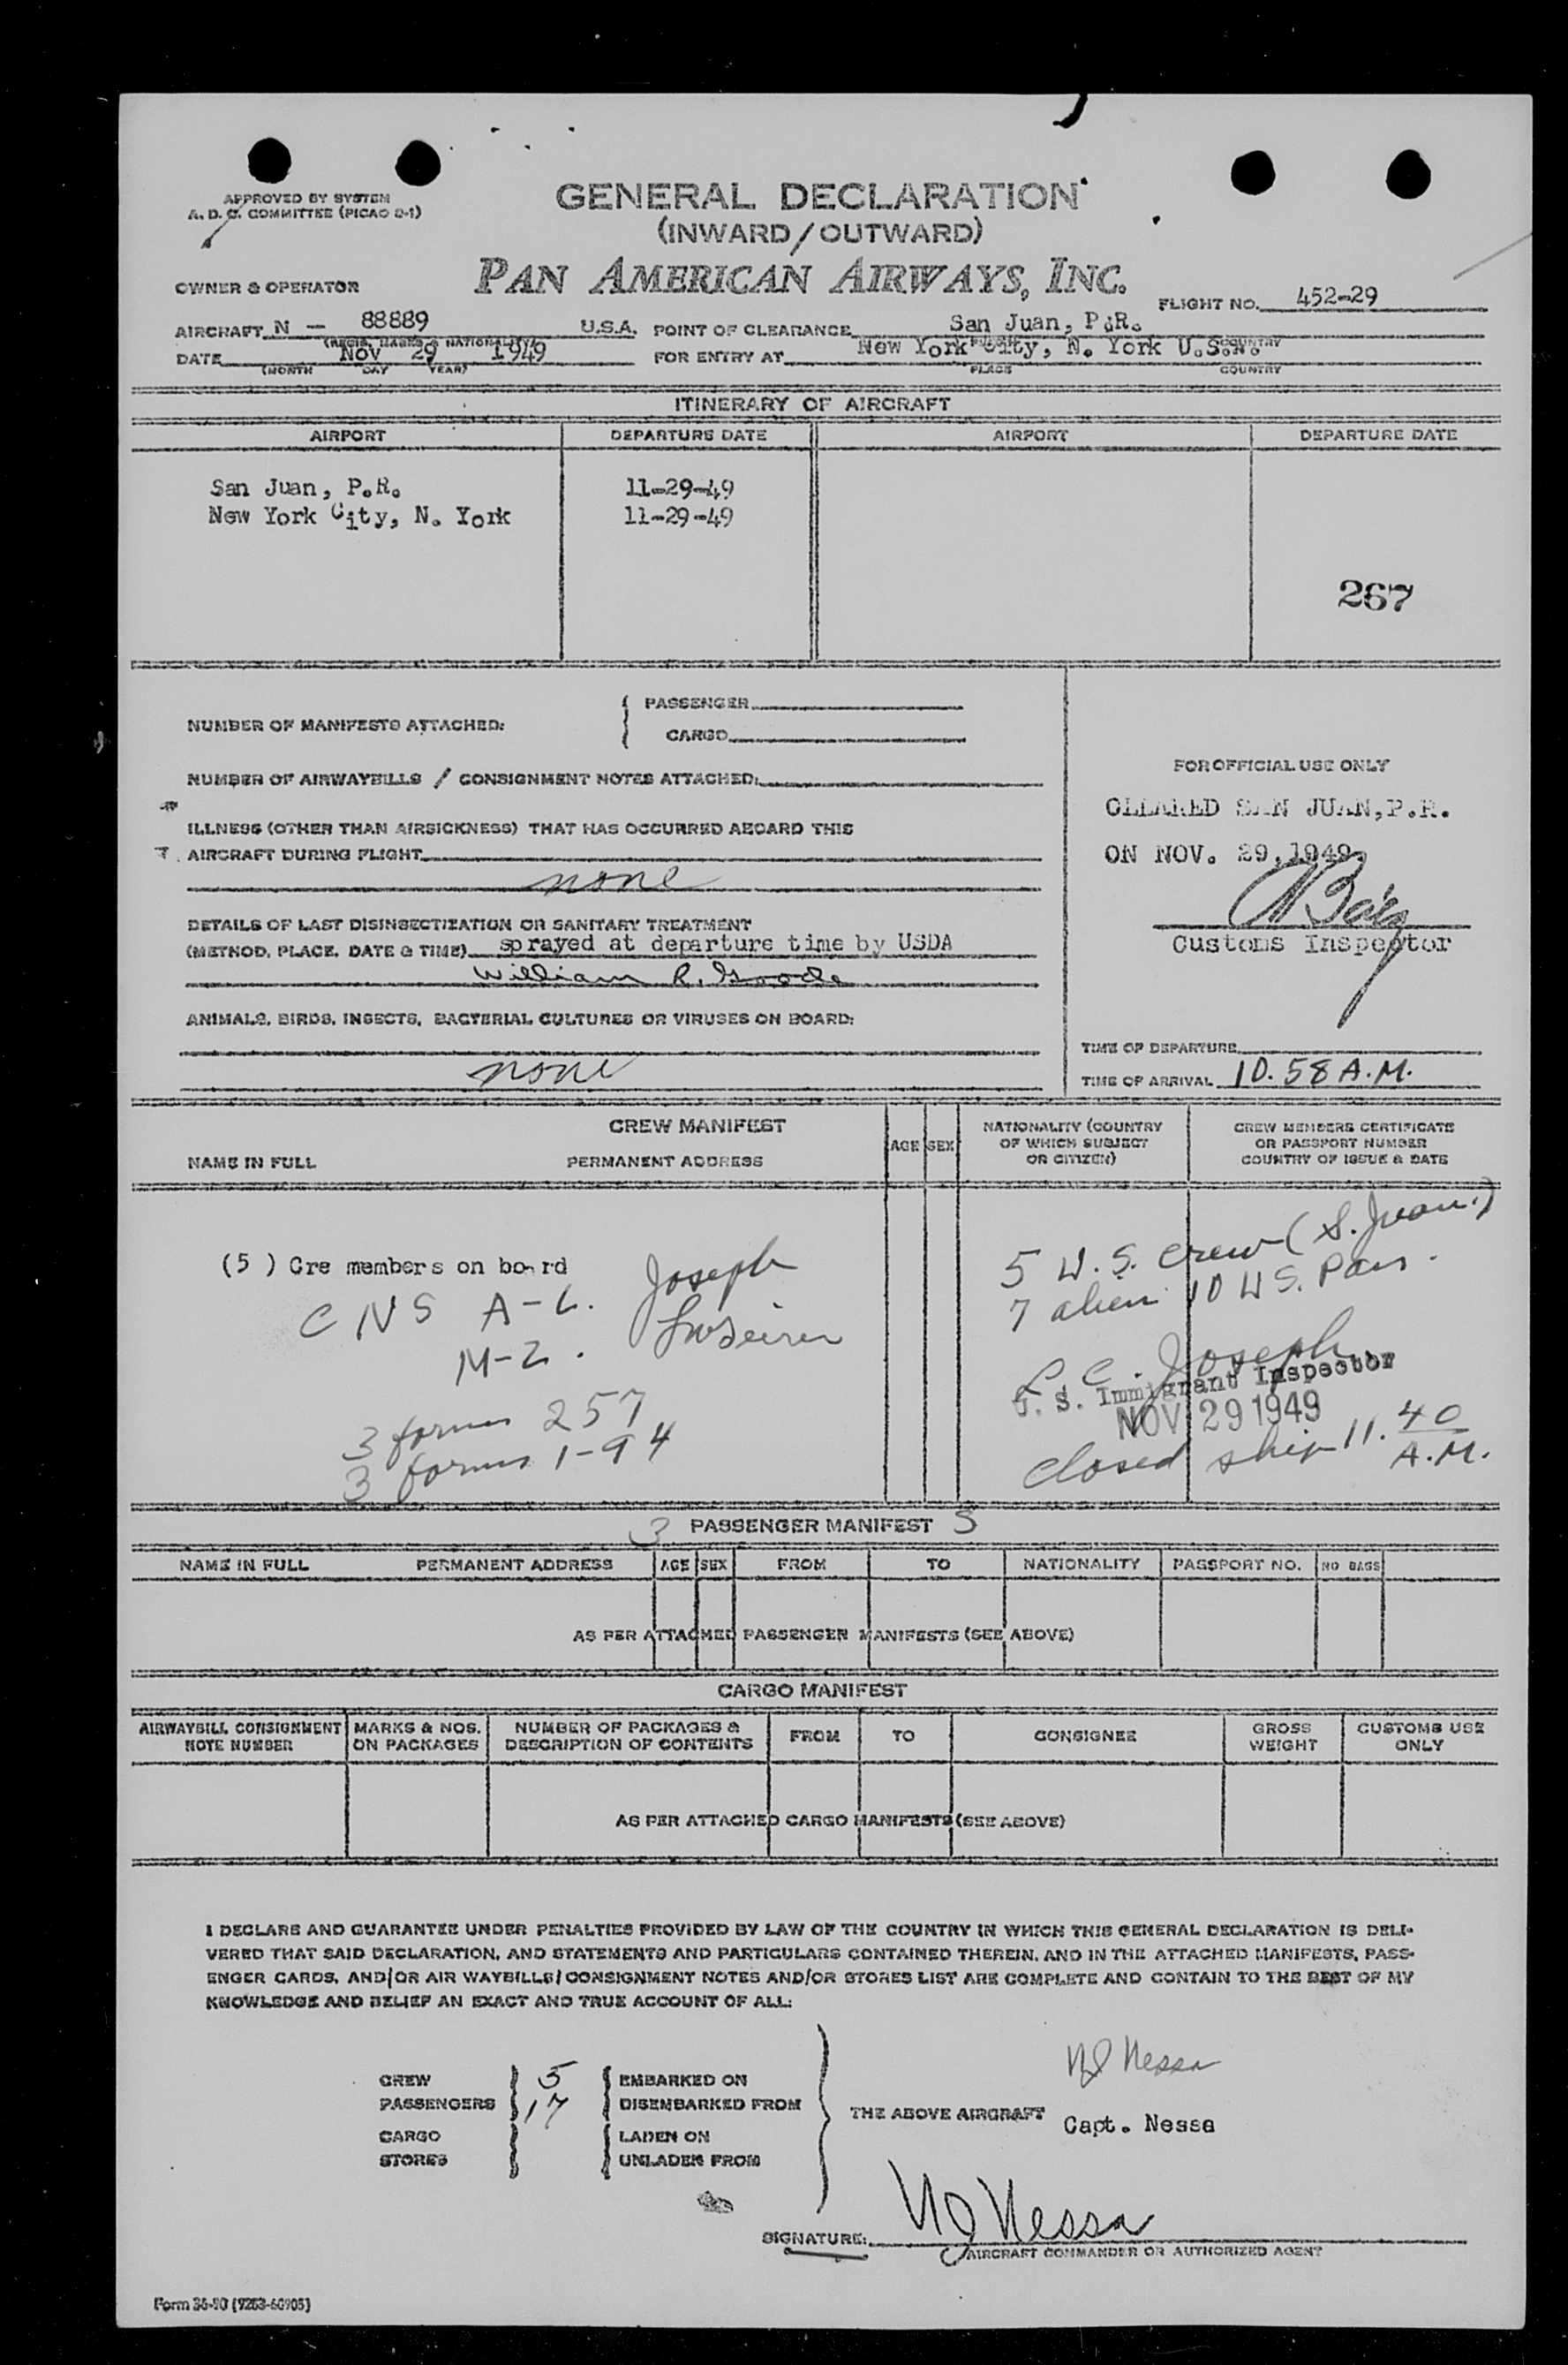 APPROVED BY SYSTEM
A. D. C. COMMITTEE (PICAO D-1)
GENERAL DECLARATION
(INWARD/OUTWARD)
PAN AMERICAN AIRWAYS, INC.
OWNER & OPERATOR
FLIGHT NO. 452-29
AIRCRAFT N - 88889 U.S.A. POINT OF CLEARANCE San Juan, P.R.
DATE NOV 29 1949 FOR ENTRY AT New York City, N. York
(MONTH DAY YEAR) PLACE COUNTRY
ITINERARY OF AIRCRAFT
AIRPORT DEPARTURE DATE AIRPORT DEPARTURE DATE
San Juan, P.R. 11-29-49
New York City, N. York 11-29-49
267
NUMBER OF MANIFESTS ATTACHED: { PASSENGER
CARGO
NUMBER OF AIRWAYBILLS / CONSIGNMENT NOTES ATTACHED:
ILLNESS (OTHER THAN AIRSICKNESS) THAT HAS OCCURRED ABOARD THIS
AIRCRAFT DURING FLIGHT
none
DETAILS OF LAST DISINSECTIZATION OR SANITARY TREATMENT
(METHOD, PLACE, DATE & TIME) sprayed at departure time by USDA
William R. Goode
ANIMALS, BIRDS, INSECTS, BACTERIAL CULTURES OR VIRUSES ON BOARD:
none
FOR OFFICIAL USE ONLY
CLEARED SAN JUAN, P.R.
ON NOV. 29, 1949.
Customs Inspector
TIME OF DEPARTURE
TIME OF ARRIVAL 10.58 A.M.
CREW MANIFEST
NAME IN FULL PERMANENT ADDRESS AGE SEX NATIONALITY (COUNTRY OF WHICH SUBJECT OR CITIZEN) CREW MEMBERS CERTIFICATE OR PASSPORT NUMBER COUNTRY OF ISSUE & DATE
(5 ) Cre members on board
C N S A-L. Joseph
M-Z.
3 forms 257
3 forms 1-94
5 U.S. crew (S. Juan.)
7 alien 10 US. Pass.
L. C. Joseph
U. S. Immigrant Inspector
NOV 29 1949
closed ship 11.40 A.M.
3 PASSENGER MANIFEST S
NAME IN FULL PERMANENT ADDRESS AGE SEX FROM TO NATIONALITY PASSPORT NO. NO BAGS
AS PER ATTACHED PASSENGER MANIFESTS (SEE ABOVE)
CARGO MANIFEST
AIRWAYBILL CONSIGNMENT NOTE NUMBER MARKS & NOS. ON PACKAGES NUMBER OF PACKAGES & DESCRIPTION OF CONTENTS FROM TO CONSIGNEE GROSS WEIGHT CUSTOMS USE ONLY
AS PER ATTACHED CARGO MANIFESTS (SEE ABOVE)
I DECLARE AND GUARANTEE UNDER PENALTIES PROVIDED BY LAW OF THE COUNTRY IN WHICH THIS GENERAL DECLARATION IS DELI-
VERED THAT SAID DECLARATION, AND STATEMENTS AND PARTICULARS CONTAINED THEREIN, AND IN THE ATTACHED MANIFESTS, PASS-
ENGER CARDS, AND/OR AIR WAYBILLS/CONSIGNMENT NOTES AND/OR STORES LIST ARE COMPLETE AND CONTAIN TO THE BEST OF MY
KNOWLEDGE AND BELIEF AN EXACT AND TRUE ACCOUNT OF ALL:
CREW 5 EMBARKED ON
PASSENGERS 17 DISEMBARKED FROM
CARGO LADEN ON
STORES UNLADEN FROM
THE ABOVE AIRCRAFT
NJ Nessa
Capt. Nessa
SIGNATURE: NJ Nessa
AIRCRAFT COMMANDER OR AUTHORIZED AGENT
Form 36-50 (9253-60905)